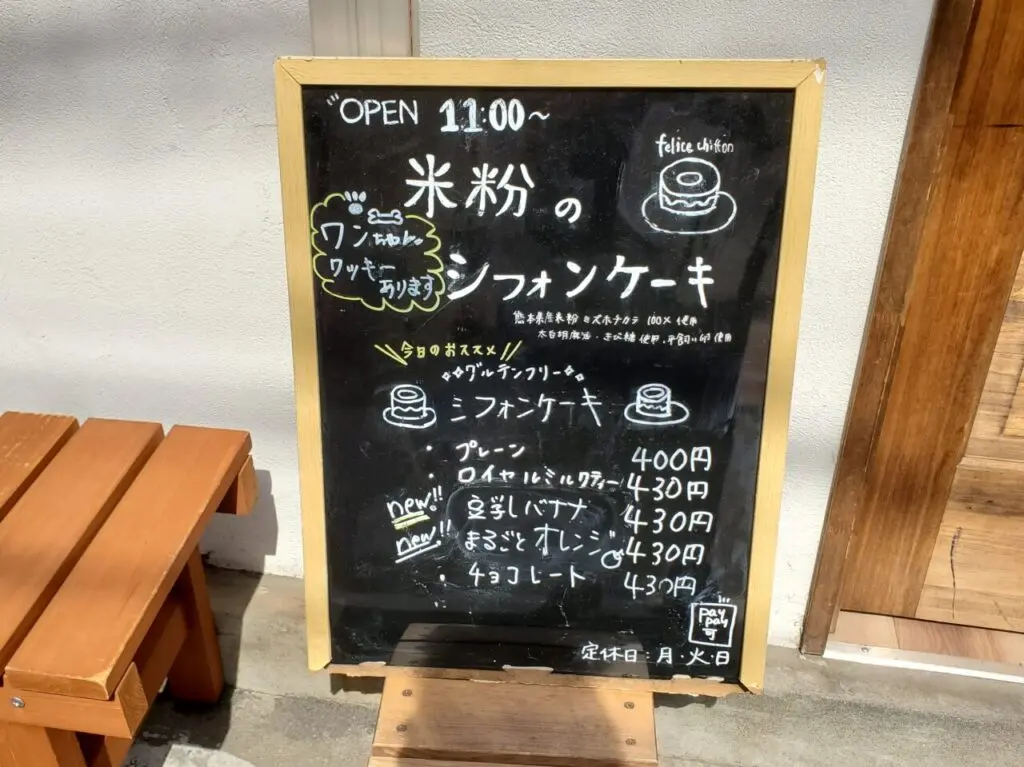 OPEN 11:00～
felice chiffon
米粉の
ワンちゃん
ワッキー
あります
シフォンケーキ
熊本県産米粉 ミズホチカラ 100% 使用
太白胡麻油・きび糖使用、平飼い卵使用
今日のおススメ
グルテンフリー
シフォンケーキ
・プレーン 400円
・ロイヤルミルクティー 430円
new!! 豆乳バナナ 430円
new!! まるごとオレンジ 430円
・チョコレート 430円
pay
pay
可
定休日:月・火・日